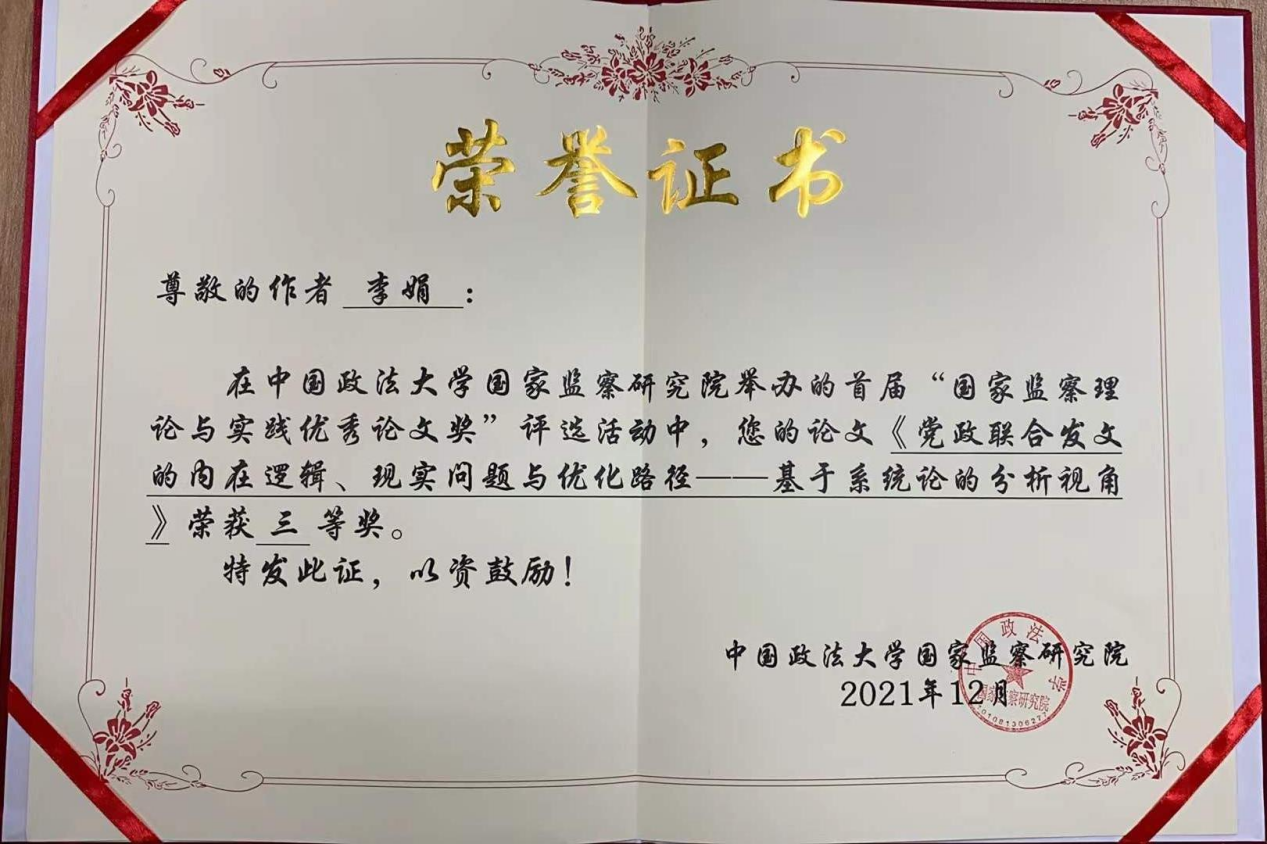 荣誉证书
尊敬的作者 李娟 ：
在中国政法大学国家监察研究院举办的首届“国家监察理
论与实践优秀论文奖”评选活动中，您的论文《党政联合发文
的内在逻辑、现实问题与优化路径——基于系统论的分析视角
》荣获 三 等奖。
特发此证，以资鼓励！
中国政法大学国家监察研究院
2021年12月
中国政法大学
国家监察研究院